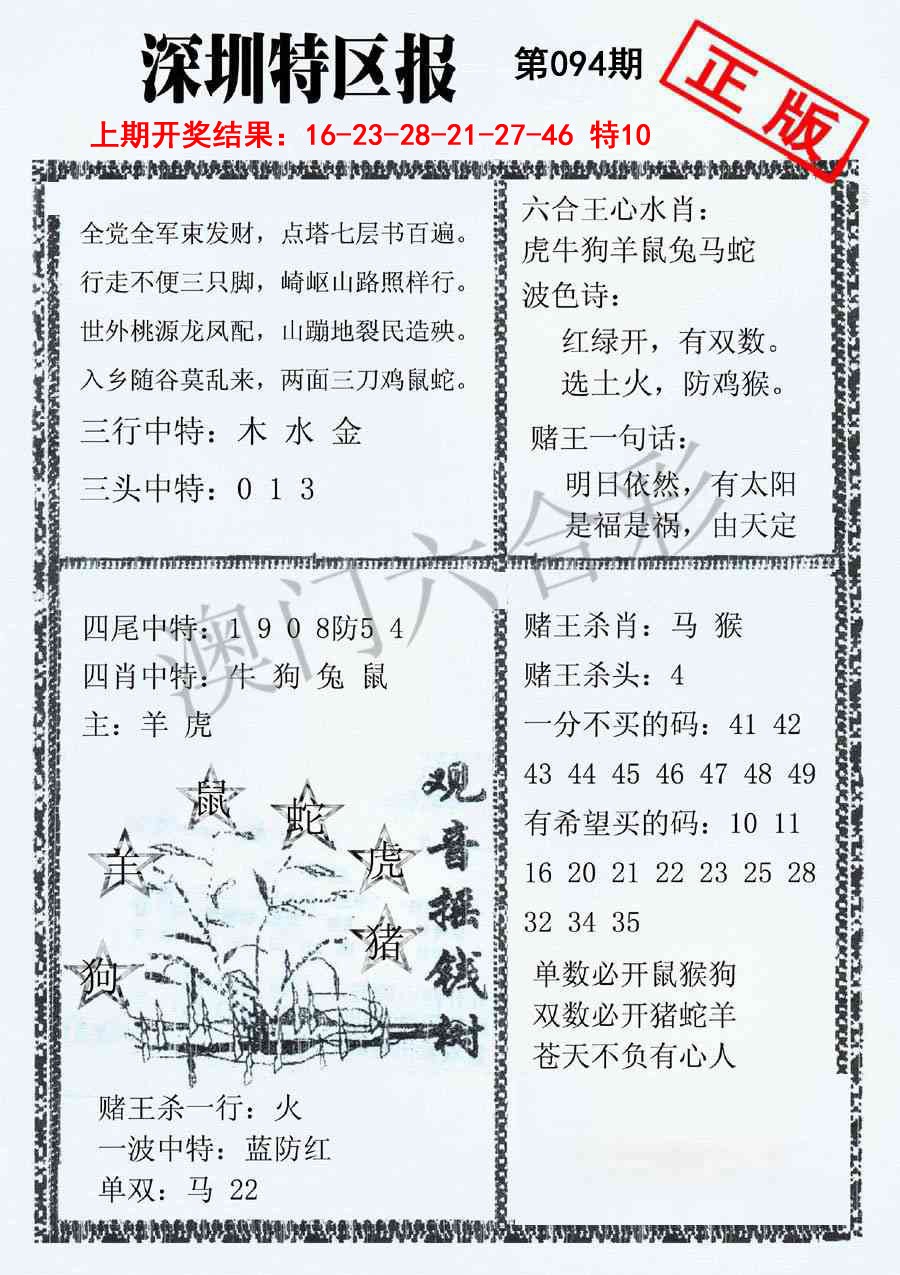 深圳特区报
第094期
正版
上期开奖结果：16-23-28-21-27-46 特10
全党全军束发财，点塔七层书百遍。
行走不便三只脚，崎岖山路照样行。
世外桃源龙凤配，山蹦地裂民造殃。
入乡随谷莫乱来，两面三刀鸡鼠蛇。
三行中特：木 水 金
三头中特：0 1 3
六合王心水肖：
虎牛狗羊鼠兔马蛇
波色诗：
红绿开，有双数。
选土火，防鸡猴。
赌王一句话：
明日依然，有太阳
是福是祸，由天定
澳门六合彩
四尾中特：1 9 0 8防5 4
四肖中特：牛 狗 兔 鼠
主：羊 虎
鼠
蛇
羊
虎
猪
狗
观音摇钱树
赌王杀一行：火
一波中特：蓝防红
单双：马 22
赌王杀肖：马 猴
赌王杀头：4
一分不买的码：41 42
43 44 45 46 47 48 49
有希望买的码：10 11
16 20 21 22 23 25 28
32 34 35
单数必开鼠猴狗
双数必开猪蛇羊
苍天不负有心人